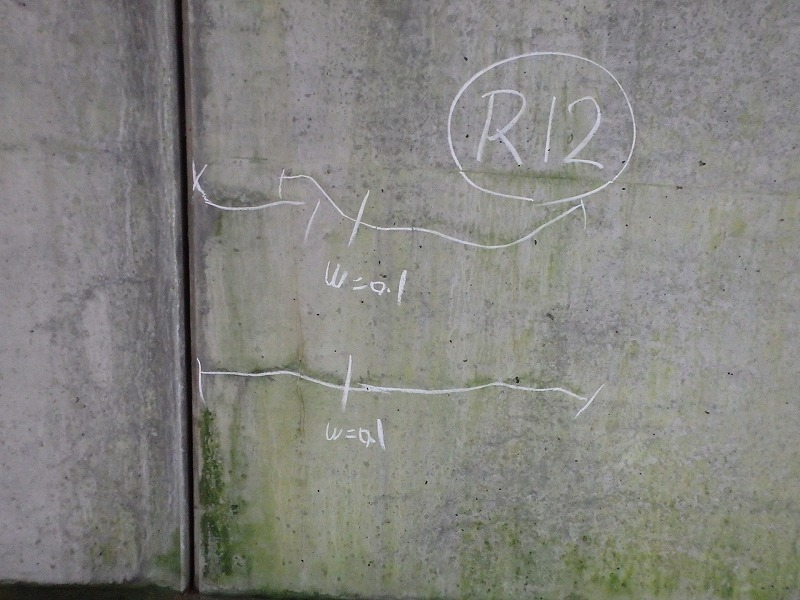 R12
W=0.1
W=0.1